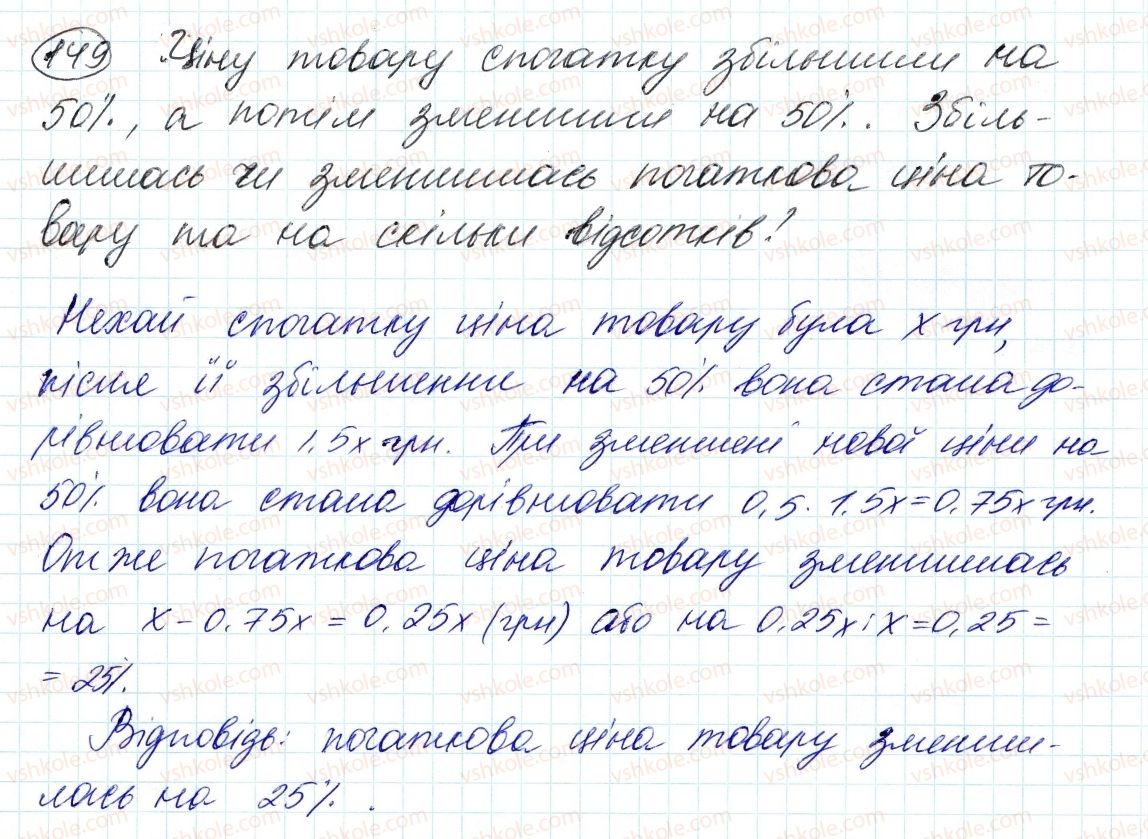 149. Ціну товару спочатку збільшили на
50%, а потім зменшили на 50%. Збіль-
шилась чи зменшилась початкова ціна то-
вару та на скільки відсотків?
Нехай спочатку ціна товару була x грн,
після її збільшення на 50% вона стала до-
рівнювати 1,5x грн. При зменшені нової ціни на
50% вона стала дорівнювати 0,5 · 1,5x = 0,75x грн.
Отже початкова ціна товару зменшилась
на x - 0,75x = 0,25x (грн) або на 0,25x : x = 0,25 =
= 25%.
Відповідь: початкова ціна товару зменши-
лась на 25%.
vshkole.com